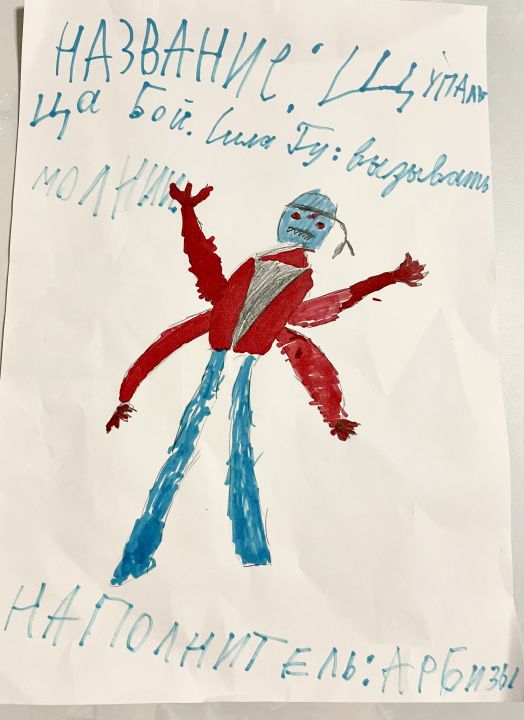 НАЗВАНИЕ: ЩУПАЛЬ
ЦА БОЙ. Сила Гу: вызывать
МОЛНИИ
НАПОЛНИТЕЛЬ: АРБИЗЫ